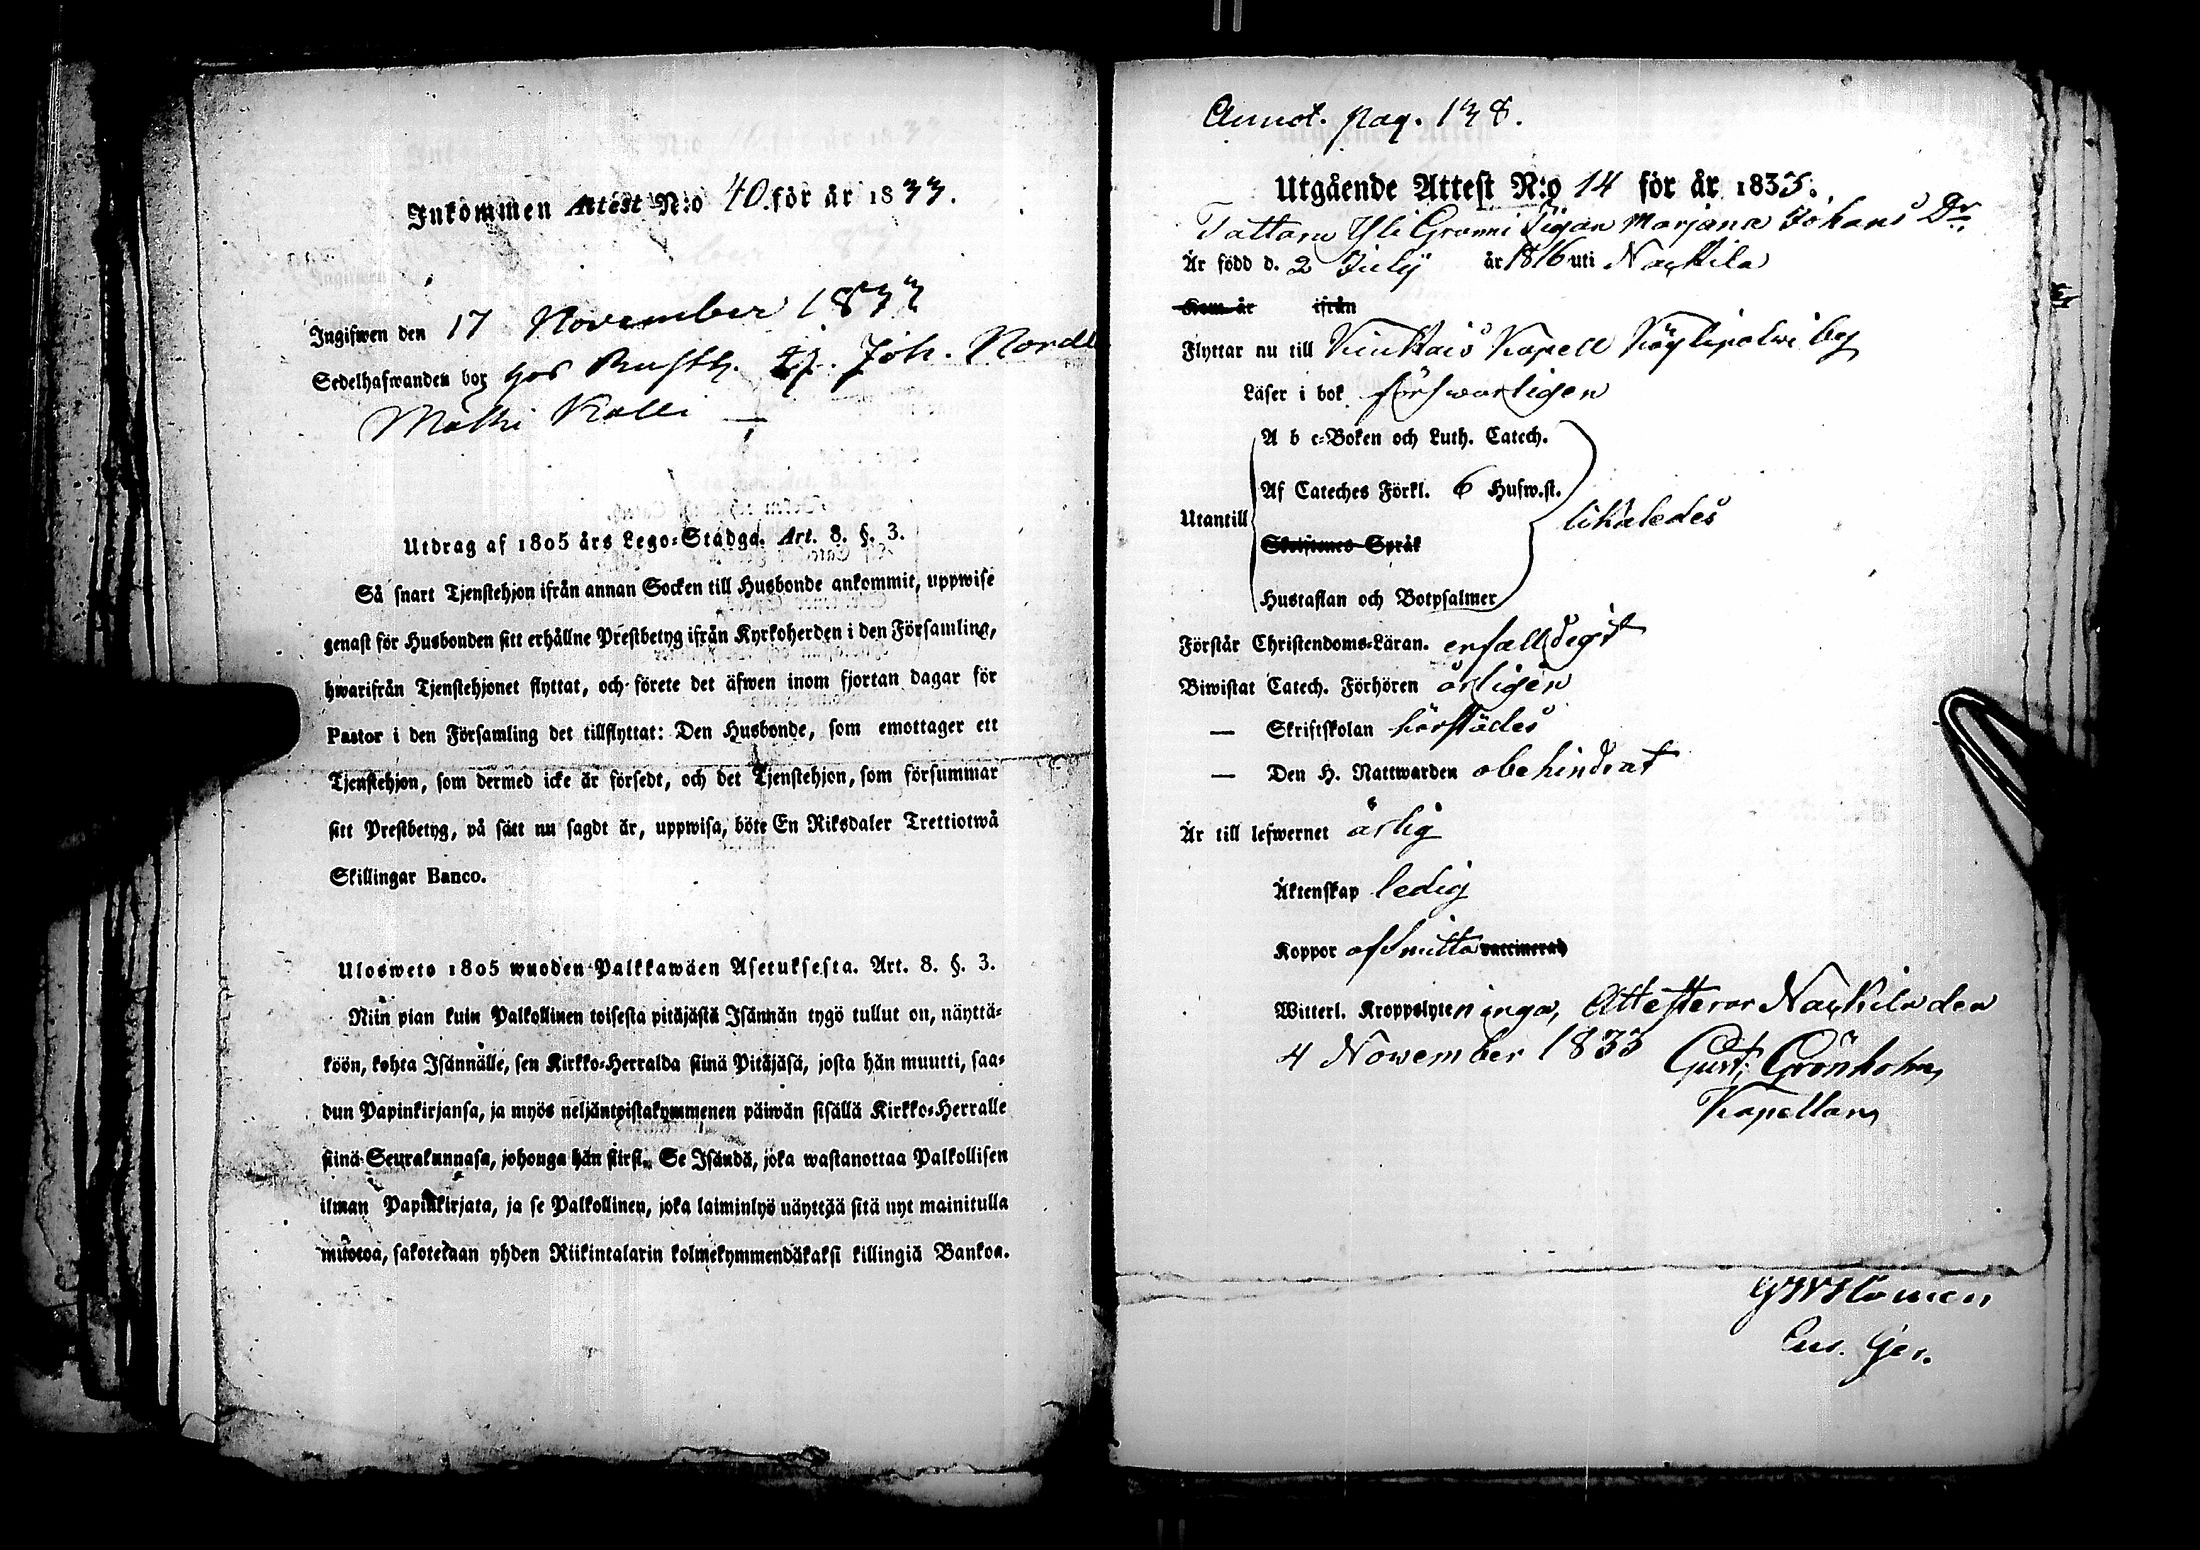 Inkommen Attest N:o 40. för år 1833.
Ingifwen den 17 November 1833
Sedelhafwanden bor hos Rusth. Joh. Nordl
Matti Kalli —
Utdrag af 1805 års Lego-Stadga. Art. 8. §. 3.
Så snart Tjenstehjon ifrån annan Socken till Husbonde ankommit, uppwise
genast för Husbonden sitt erhållne Prestbetyg ifrån Kyrkoherden i den Församling,
hwarifrån Tjenstehjonet flyttat, och förete det äfwen inom fjortan dagar för
Pastor i den Församling det tillflyttat: Den Husbonde, som emottager ett
Tjenstehjon, som dermed icke är försedt, och det Tjenstehjon, som försummar
sitt Prestbetyg, på sätt nu sagdt är, uppwisa, böte En Riksdaler Trettiotwå
Skillingar Banco.
Ulosweto 1805 wuoden Palkkawäen Asetuksesta. Art. 8. §. 3.
Niin pian kuin Palkollinen toisesta pitäjästä Isännän tygö tullut on, näyttä-
köön, kohta Isännälle, sen Kirkko-Herralda siinä Pitäjäsä, josta hän muutti, saa-
dun Papinkirjansa, ja myös neljäntoistakymmenen päiwän sisällä Kirkko-Herralle
siinä Seurakunnasa, johonga hän siirsi. Se Isändä, joka wastanottaa Palkollisen
ilman Papinkirjata, ja se Palkollinen, joka laiminlyö näyttää sitä nyt mainitulla
muotoa, sakotetaan yhden Riikintalarin kolmekymmendäkaksi killingiä Bankoa.
Annot. pag. 138.
Utgående Attest N:o 14 för år 1833.
Tattara Yli Granni Pigan Marjana Johans Dr.
Är född d. 2 Julij år 1816 uti Nackila
Kom år ifrån
Flyttar nu till Kiukais Kapell Köylipolwi by
Läser i bok förswarligen
A b c-Boken och Luth. Catech.
Af Cateches Förkl. 6 Hufw.st.
Utantill likaledes
Skriftenes Språk
Hustaflan och Botpsalmer
Förstår Christendoms-Läran. enfalldigt
Biwistat Catech. Förhören årligen
— Skriftskolan härstädes
— Den H. Nattwarden obehindrat
Är till lefwernet ärlig
Äktenskap ledig
Koppor afsmitta vaccinerad
Witterl. Kroppslyten inga, Attesterar Nackila den
4 November 1833 Gust. Grönholm
Kapellan